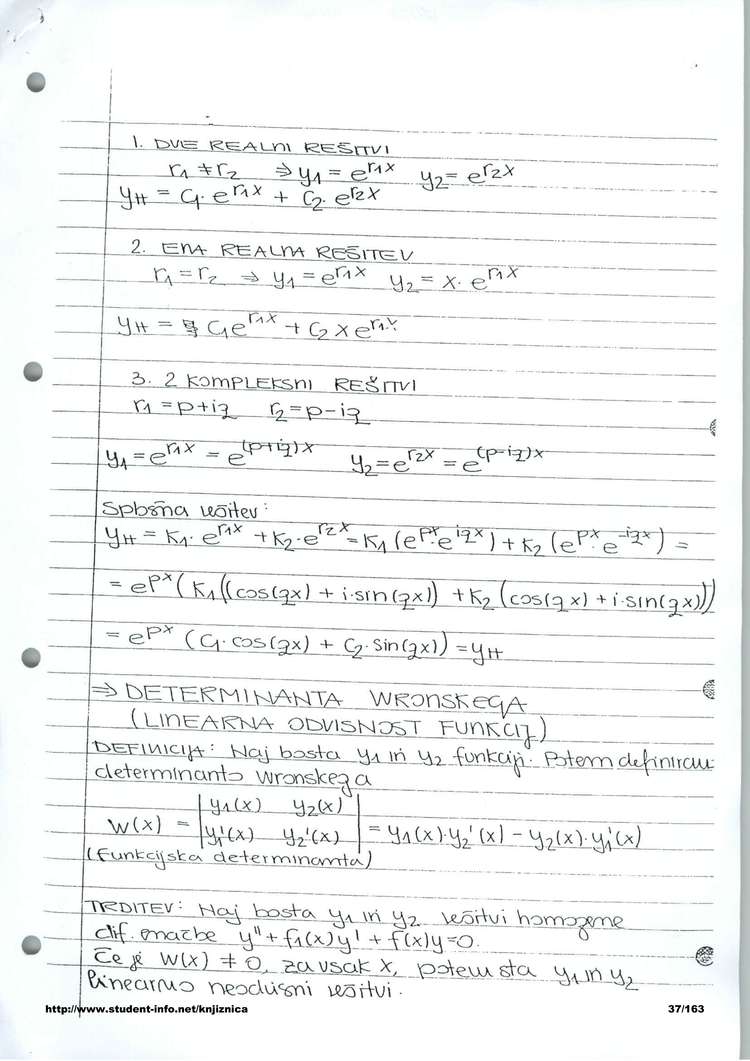 1. DVE REALNI REŠITVI
r₁ ≠ r₂ ⇒ y₁ = e^{r₁x} y₂ = e^{r₂x}
y_H = C₁·e^{r₁x} + C₂·e^{r₂x}
2. ENA REALNA REŠITEV
r₁ = r₂ ⇒ y₁ = e^{r₁x} y₂ = x·e^{r₁x}
y_H = C₁e^{r₁x} + C₂xe^{r₁x}
3. 2 KOMPLEKSNI REŠITVI
r₁ = p+iq r₂ = p-iq
y₁ = e^{r₁x} = e^{(p+iq)x} y₂ = e^{r₂x} = e^{(p-iq)x}
Splošna rešitev:
y_H = K₁·e^{r₁x} + K₂·e^{r₂x} = K₁(e^{px}·e^{iqx}) + K₂(e^{px}·e^{-iqx}) =
= e^{px}(K₁((cos(qx) + i·sin(qx)) + K₂(cos(qx) + i·sin(qx)))
= e^{px}(C₁·cos(qx) + C₂·sin(qx)) = y_H
⇒ DETERMINANTA WRONSKEGA
(LINEARNA ODVISNOST FUNKCIJ)
DEFINICIJA: Naj bosta y₁ in y₂ funkciji. Potem definiramo
determinanto Wronskega
W(x) = |y₁(x) y₂(x)|
|y₁'(x) y₂'(x)| = y₁(x)·y₂'(x) - y₂(x)·y₁'(x)
(funkcijska determinanta)
TRDITEV: Naj bosta y₁ in y₂ rešitvi homogene
dif. enačbe y'' + f₁(x)y' + f(x)y=0.
Če je W(x) ≠ 0, za vsak x, potem sta y₁ in y₂
linearno neodvisni rešitvi.
http://www.student-info.net/knjiznica 37/163